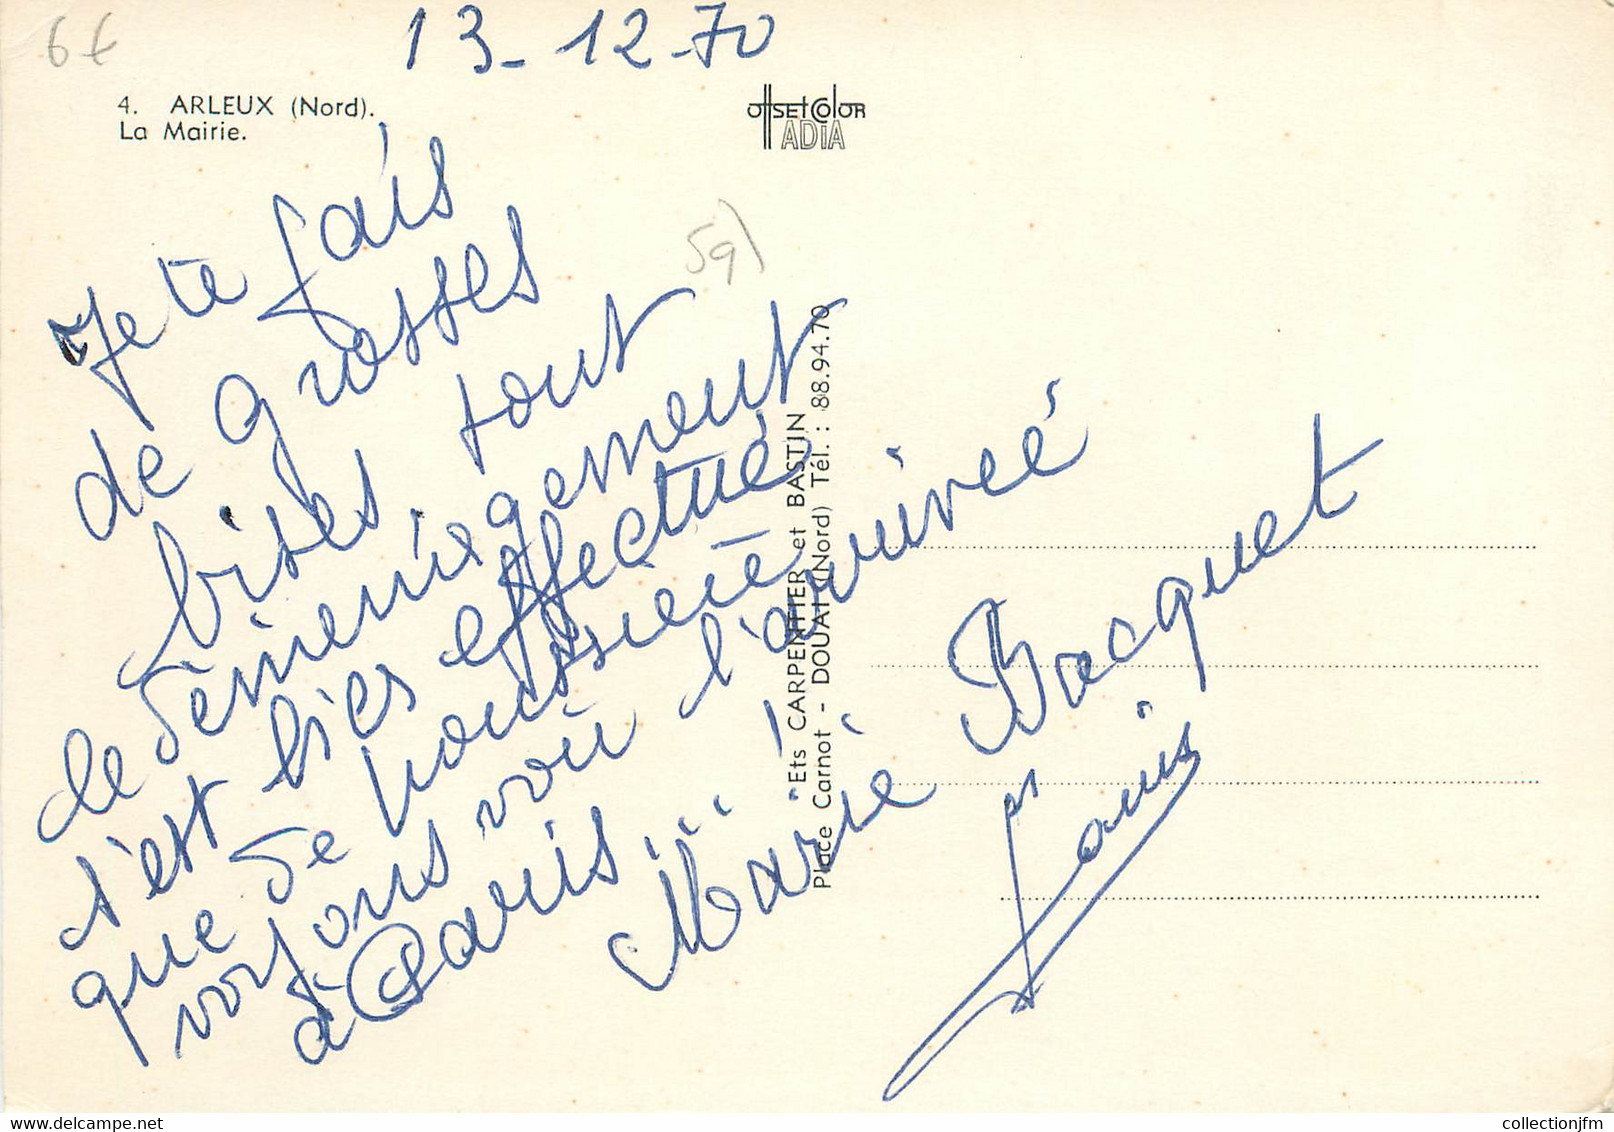 6€
13-12-70
4. ARLEUX (Nord).
La Mairie.
OffSETColOR
ADiA
59)
Je te fais
de grosses
bises tout
le déménagement
s'est bien effectué
que de poussière
voyons voir l'arrivée
à Paris...
Marie Bacquet
Louis
"Ets CARPENTIER et BASTIN
Place Carnot - DOUAI (Nord) Tél. : 88.94.70
collectionjfm